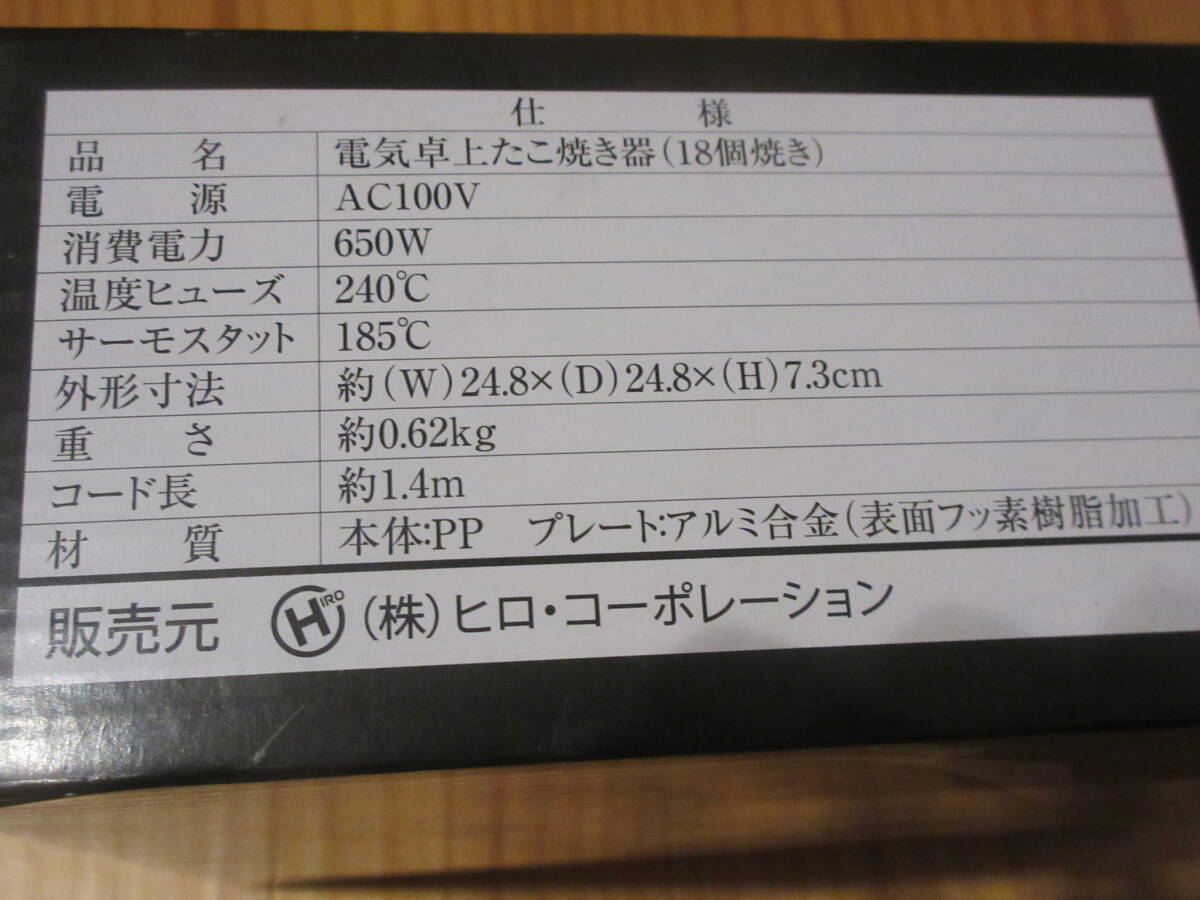 仕 様
品 名 電気卓上たこ焼き器(18個焼き)
電 源 AC100V
消費電力 650W
温度ヒューズ 240℃
サーモスタット 185℃
外形寸法 約(W)24.8×(D)24.8×(H)7.3cm
重 さ 約0.62kg
コード長 約1.4m
材 質 本体:PP プレート:アルミ合金(表面フッ素樹脂加工)
販売元 HIRO (株)ヒロ・コーポレーション